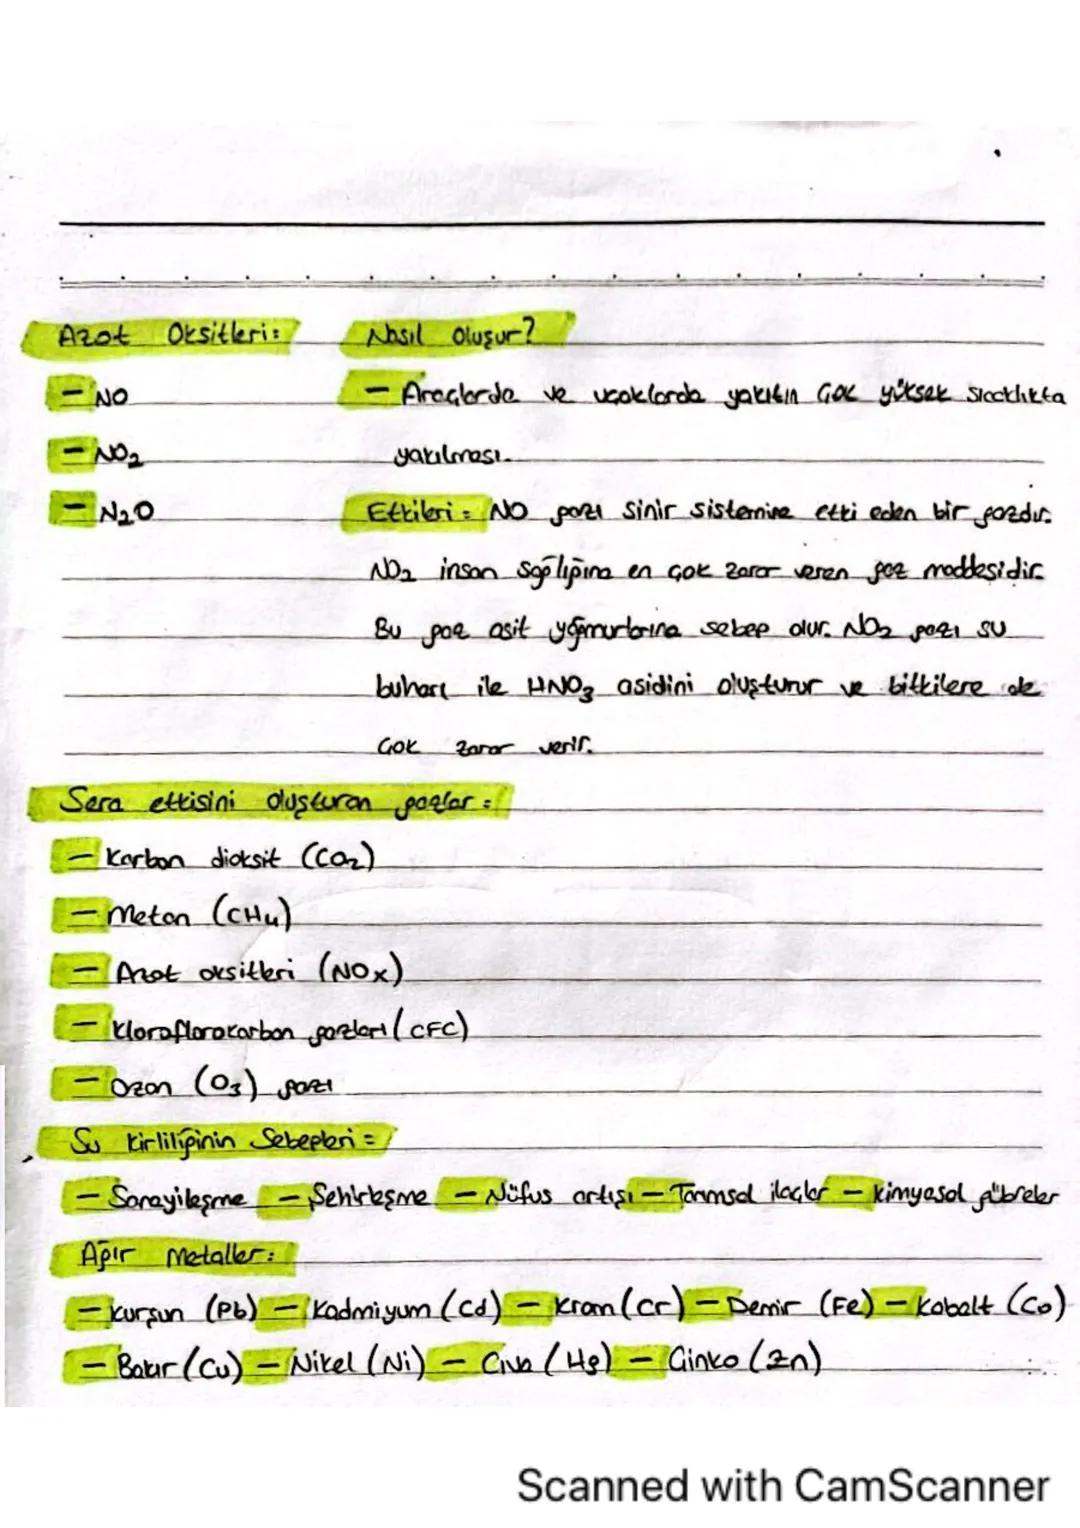 Azot Oksitleri: Nasıl Oluşur?
- NO - Araçlarda ve uçaklarda yakıtın çok yüksek sıcaklıkta
- NO₂ yakılması.
- N₂O Etkileri: NO gazı sinir sistemine etki eden bir gazdır.
NO₂ insan sağlığına en çok zarar veren gaz maddesidir.
Bu gaz asit yağmurlarına sebep olur. NO₂ gazı su
buharı ile HNO₃ asidini oluşturur ve bitkilere de
çok zarar verir.
Sera etkisini oluşturan gazlar:
- Karbon dioksit (CO₂)
- Metan (CH₄)
- Azot oksitleri (NOx)
- Kloroflorokarbon gazları (CFC)
- Ozon (O₃) gazı
Su kirliliğinin Sebepleri =
- Sanayileşme - Şehirleşme - Nüfus artışı - Tarımsal ilaçlar - kimyasal gübreler
Ağır Metaller:
- kurşun (Pb) - Kadmiyum (Cd) - Krom (Cr) - Demir (Fe) - kobalt (Co)
- Bakır (Cu) - Nikel (Ni) - Civa (Hg) - Çinko (Zn)
Scanned with CamScanner